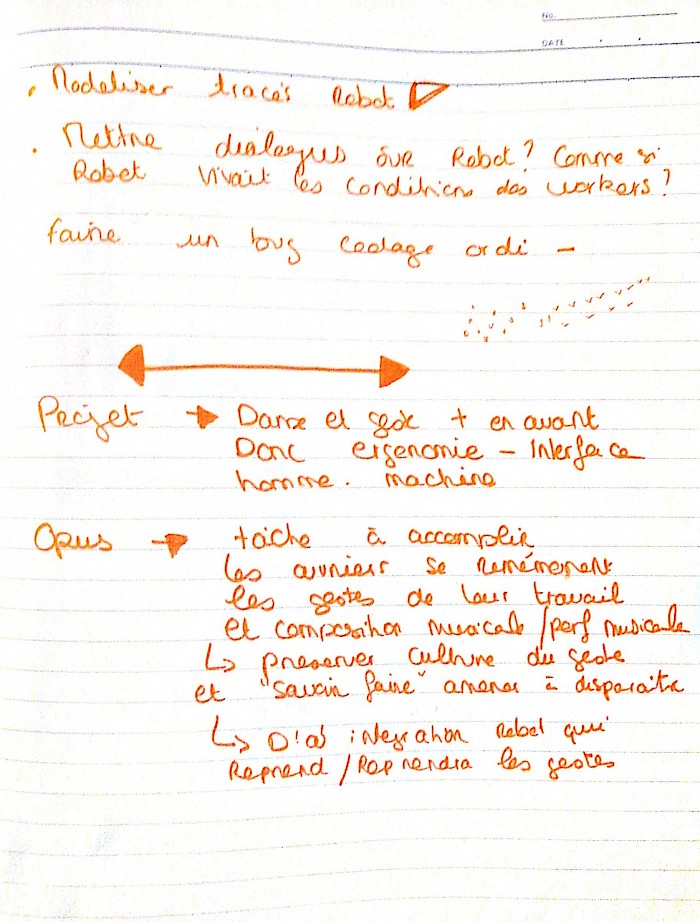 No.
DATE
. Modeliser tracés Robot
. Mettre dialogues sur Robot? Comme si
Robot vivait les conditions des workers?
faire un bug codage ordi -
Projet → Danse et geste + en avant
Donc ergonomie - Interface
homme. machine
Opus → tâche à accomplir
les ouvriers se remémorent
les gestes de leur travail
et composition musicale / perf musicale
↳ preserver culture du geste
et "savoir faire" amener à disparaître
↳ D'où integration Robot qui
Reprend / Reprendra les gestes